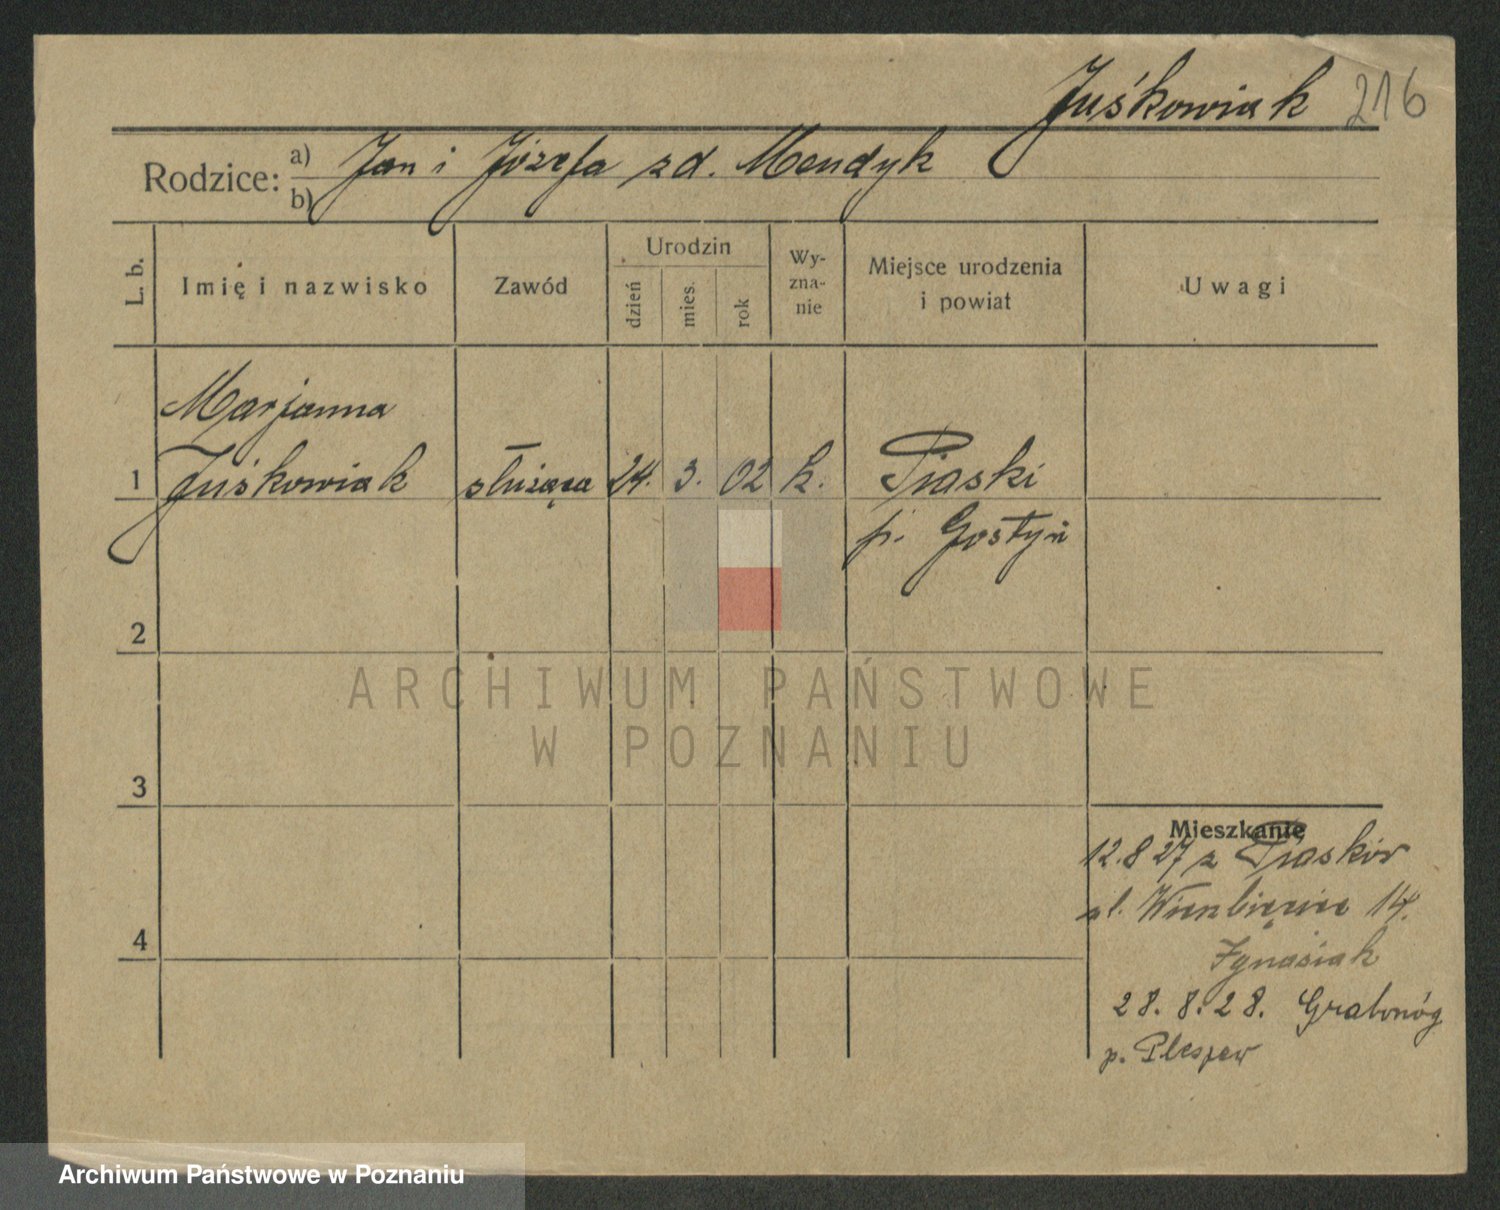 Juśkowiak 216
Rodzice: a) Jan i Józefa zd. Mendyk
b)
L. b.
Imię i nazwisko
Zawód
Urodzin
dzień
mies.
rok
Wy-
zna-
nie
Miejsce urodzenia
i powiat
Uwagi
Marjanna
1 Juśkowiak służąca 24. 3. 02 k. Piaski
p. Gostyń
2
ARCHIWUM PAŃSTWOWE
W POZNANIU
3
Mieszkanie
12.8 27 z Piasków
ul. Wierzbięcice 14.
Ignasiak
4
28. 8. 28. Grabonóg
p. Pleszew
Archiwum Państwowe w Poznaniu